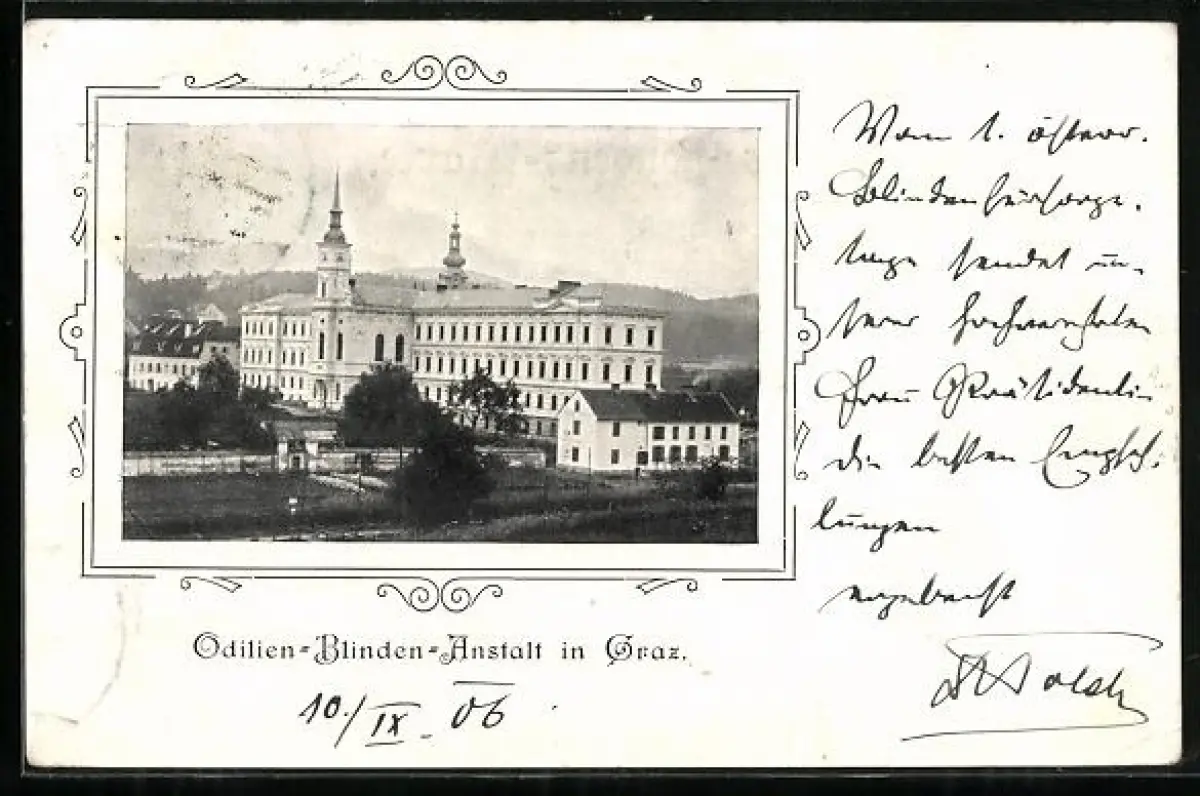 Vom 1. österr.
Blindenfürsorge-
tage sendet un-
serer hochverehrten
Frau Präsidentin
die besten Empfeh-
lungen
ergebenst
Odilien-Blinden-Anstalt in Graz.
10./IX. 06